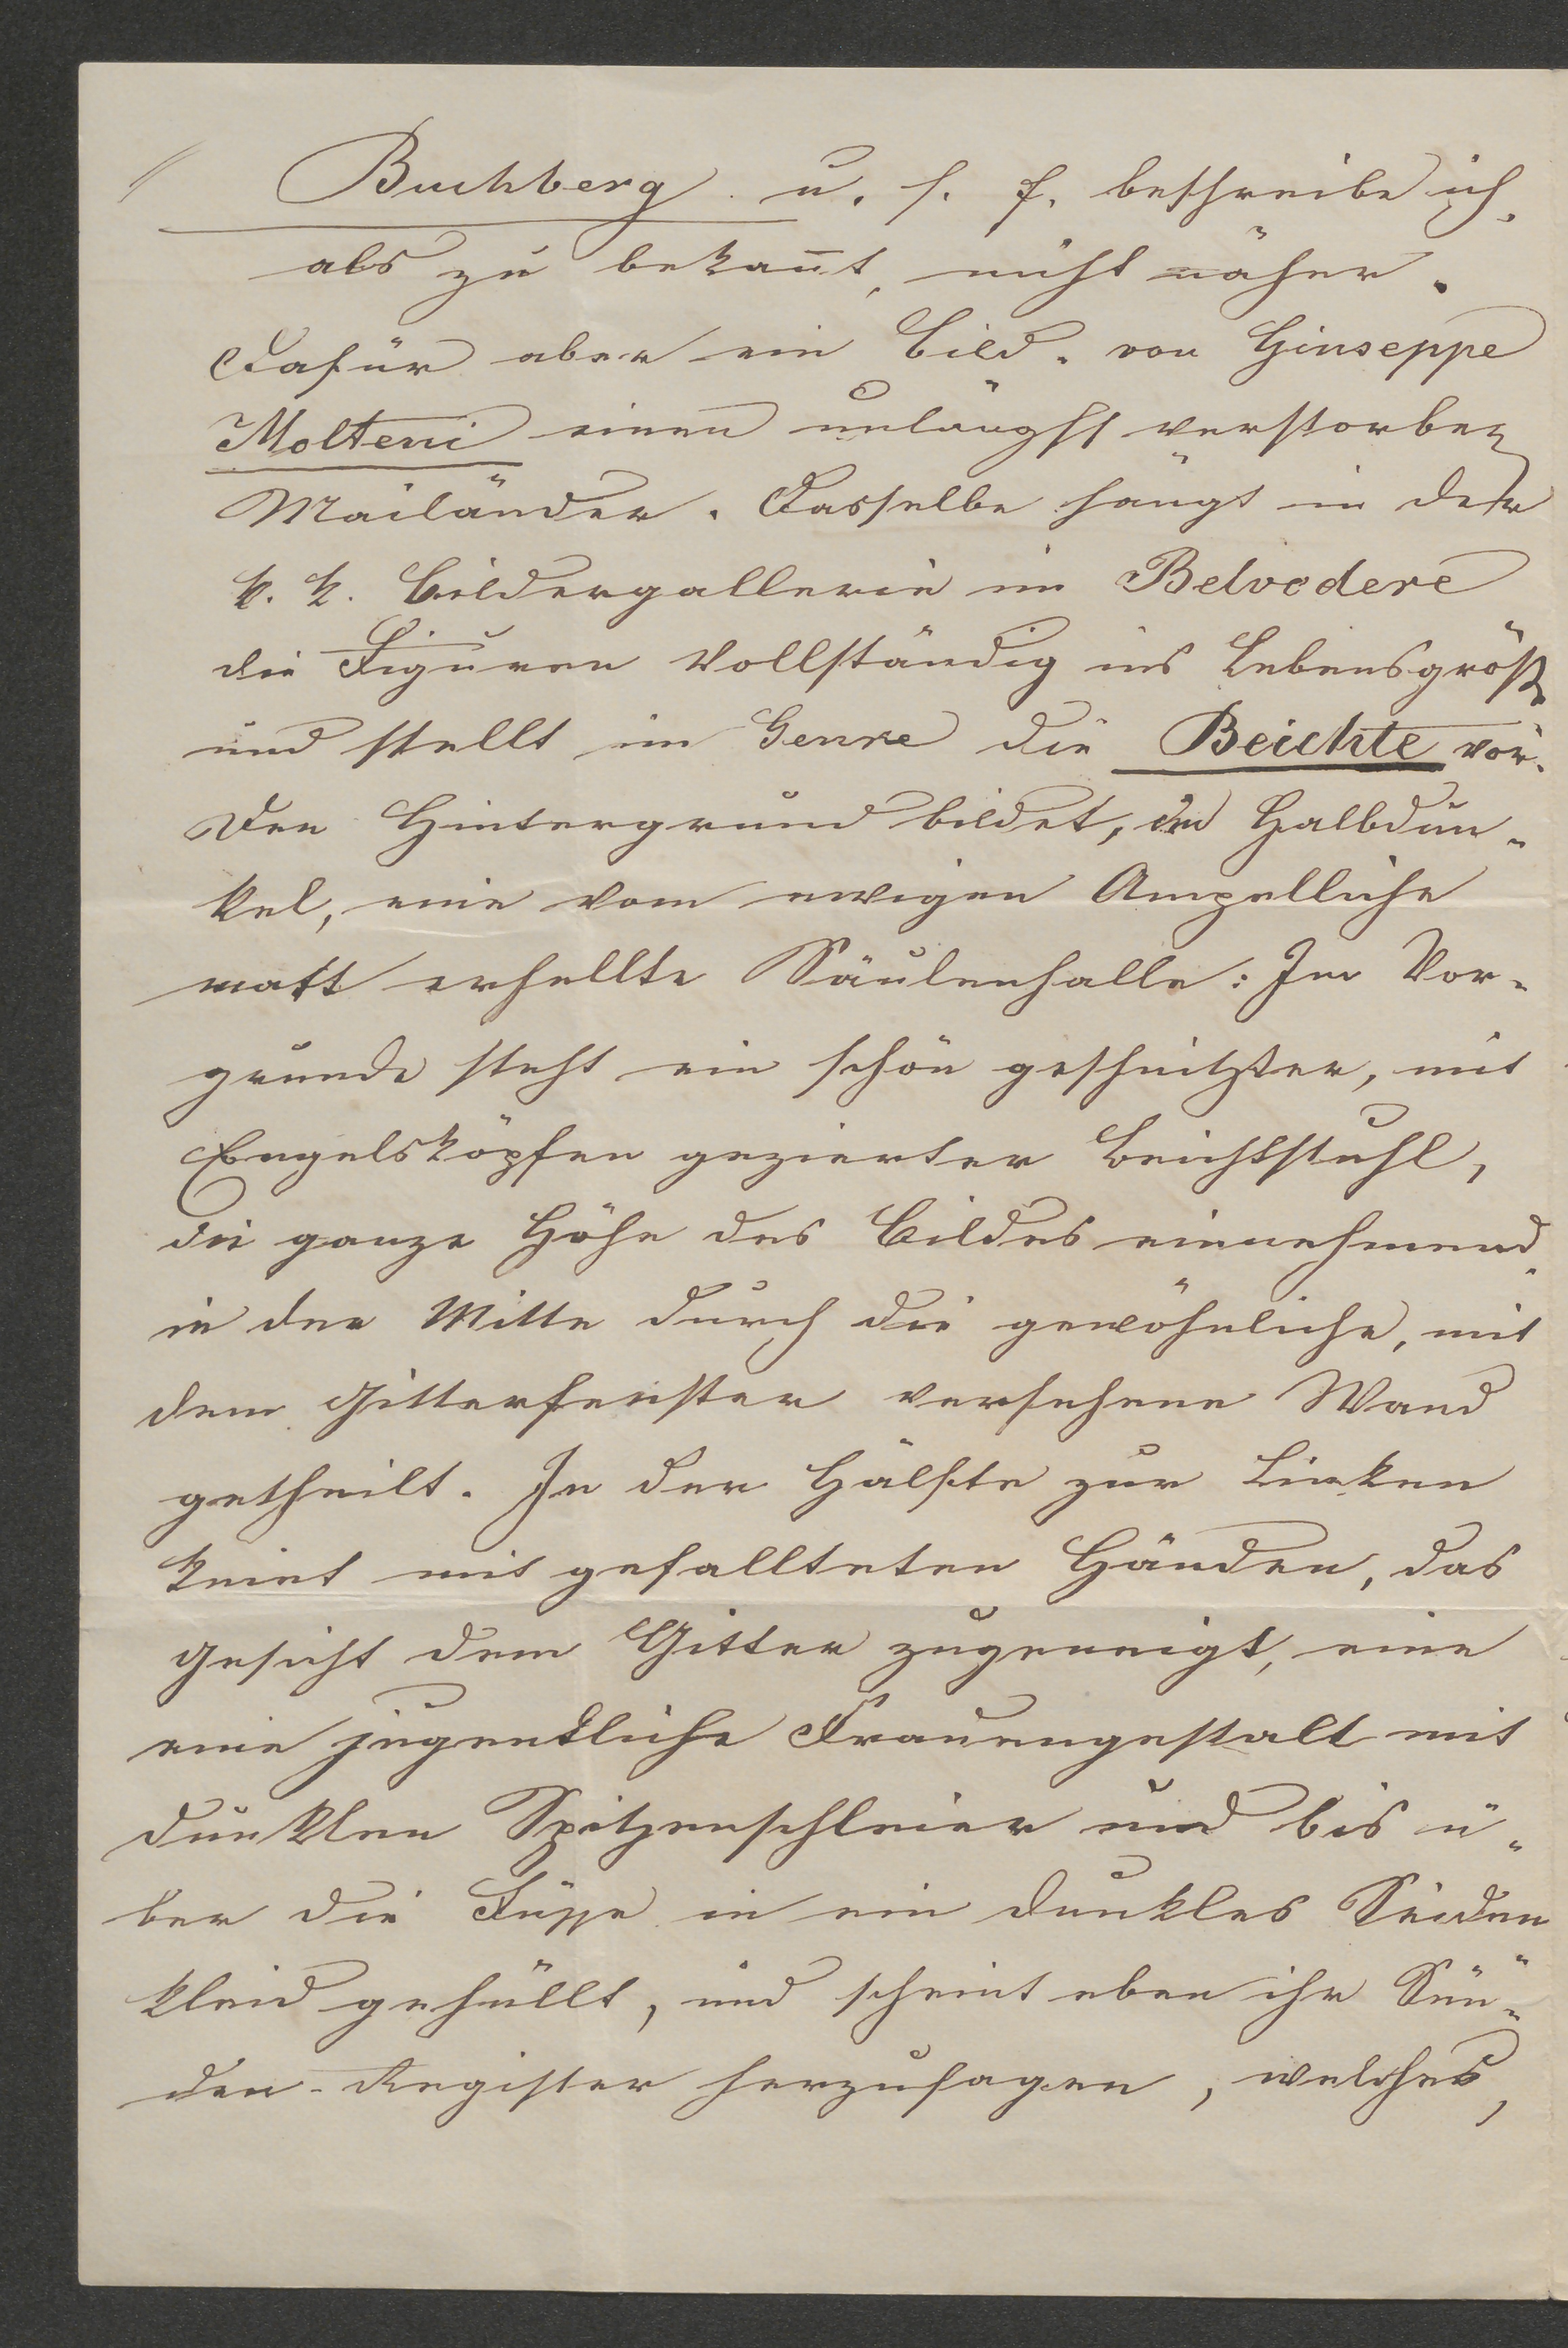 Buchberg u. s. f. beschreibe ich,
als zu bekan̄t, nicht näher.
Dafür aber ein Bild. von Giuseppe
Molteni einen unlängst verstorben
Mailänder. Dasselbe hängt in der
k. k. Bildergallerie im Belvedere
die Figuren vollständig ins Lebensgröße
und stellt im Genre die Beichte vor.
Den Hintergrund bildet, im Halbdun-
kel, eine vom ewigen Ampelliche
matt erhellte Säulenhalle: Im Vor-
grunde steht ein schön geschnitzter, mit
Engelsköpfen gezierter Beichtstuhl,
die ganze Höhe des Bildes einnehmend,
in der Mitte durch die gewöhnliche, mit
dem Gitterfenster versehene Wand
getheilt. In der Hälfte zur Linken
kniet mit gefallteten Händen, das
Gesicht dem Gitter zugeneigt, eine
eine jugendliche Frauengestalt mit
dunklen Spitzenschleier und bis ü-
ber die Füsse in ein dunkles Seiden
kleid gehüllt, und scheint eben ihr Sün-
den-Register herzusagen, welches,